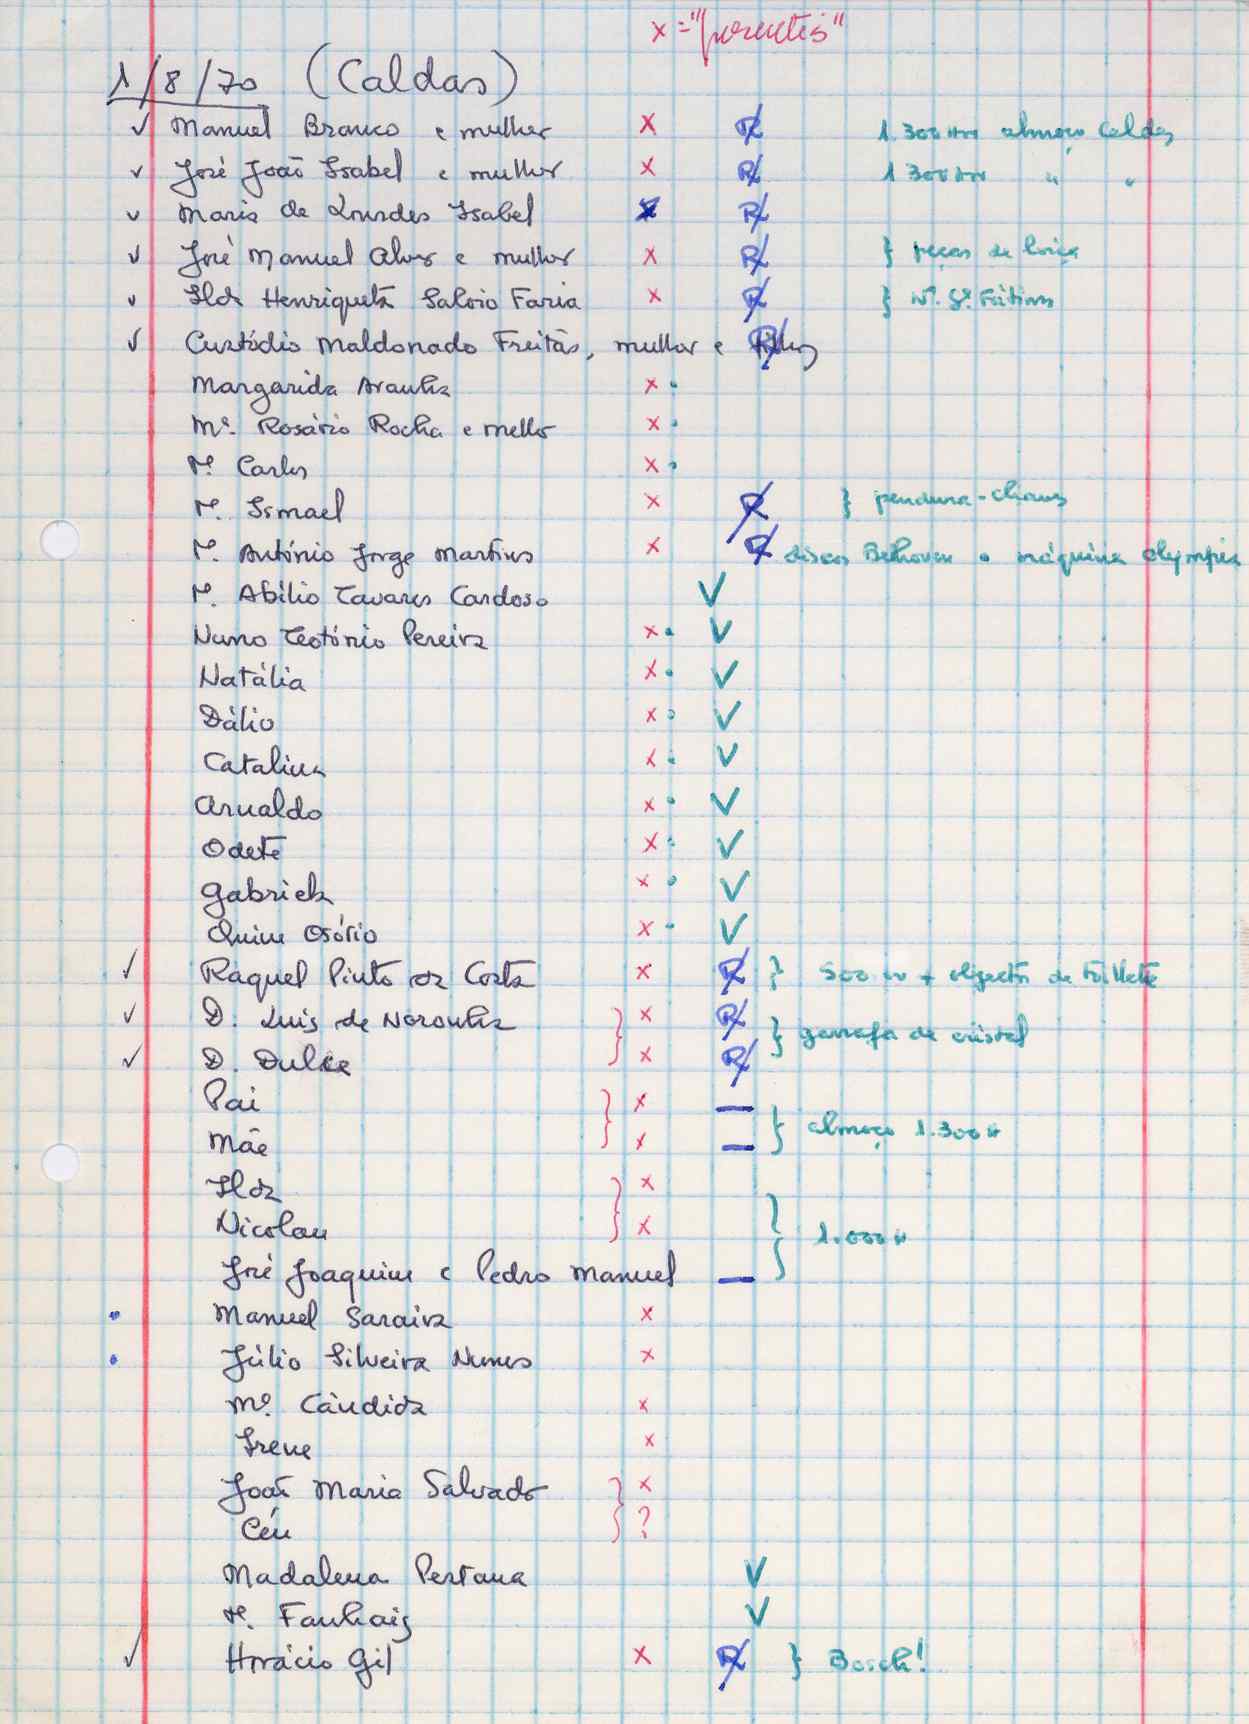 x = "presentes"
1/8/70 (Caldas)
✓ Manuel Branco e mulher x R 1.300$00 almoço Caldas
✓ José João Isabel e mulher x R 1300$00 " "
✓ Maria de Lourdes Isabel x R
✓ José Manuel Alves e mulher x R } peças de loiça
✓ Ilda Henriqueta Salvio Faria x R } Nª. Sª. Fátima
✓ Custódio Maldonado Freitas, mulher e filhos R
Margarida Aranha x •
Mª. Rosário Rocha e mello x •
P. Carlos x •
P. Ismael x R } pendura-chaves
P. António Jorge Martins x R discos Bethoven e máquina Olympia
P. Abílio Tavares Cardoso V
Nuno Teotónio Pereira x • V
Natália x • V
Dálio x • V
Catalina x • V
Arnaldo x • V
Odete x • V
Gabriela x • V
Quim Osório x • V
✓ Raquel Pinto da Costa x R } 500$00 + objectos de toillete
✓ D. Luís de Noronha } x R } garrafa de cristal
✓ D. Dulce x R
Pai } x — } almoço 1.300$
Mãe x —
Ilda } x
Nicolau x } 1.000$
José Joaquim e Pedro Manuel —
• Manuel Saraiva x
• Júlio Silveira Nunes x
Mª. Cândida x
Irene x
João Maria Salvado } x
Céu ?
Madalena Pestana V
P. Fanhais V
✓ Horácio Gil x R } Bosch!